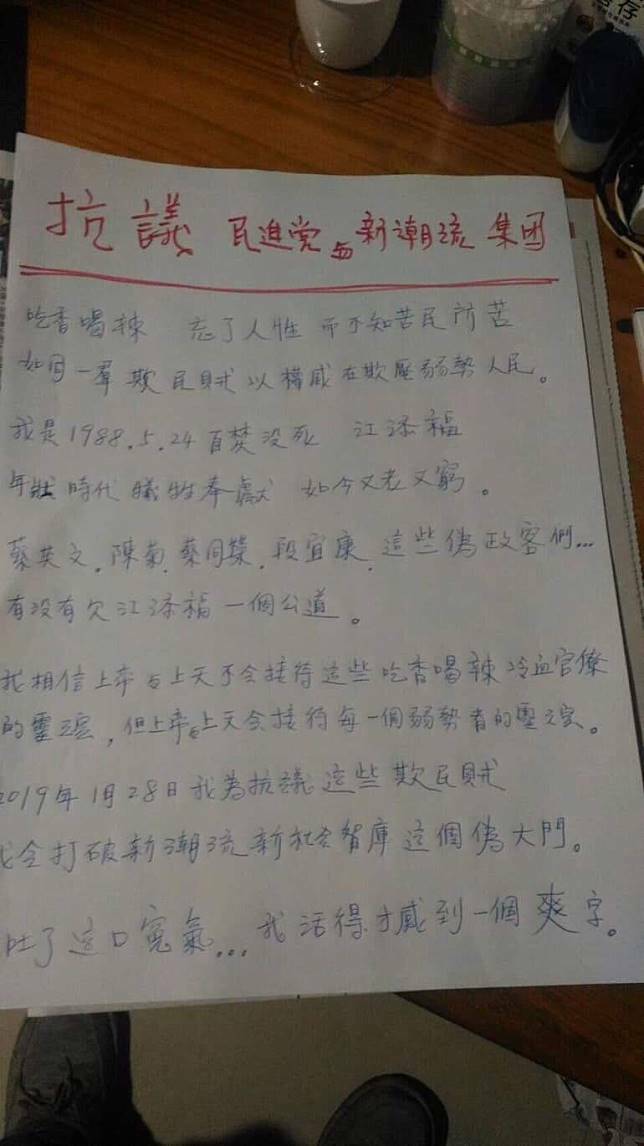 存
抗議 民進党与新潮流集团
吃香喝辣 忘了人性 而不知苦民所苦
如同一羣欺民賊以權威在欺壓弱勢人民。
我是1988.5.24自焚沒死 江添福
年壯時代犧牲奉獻 如今又老又窮。
蔡英文.陳菊.蔡同榮.段宜康.這些偽政客們...
有没有欠江添福一個公道。
我相信上帝与上天不会接待這些吃香喝辣冷血官僚
的靈魂,但上帝与上天会接待每一個弱勢者的靈魂。
2019年1月28日我為抗議這些欺民賊
我会打破新潮流新社会智庫這個偽大門。
吐了這口冤氣...我活得才感到一個爽字。